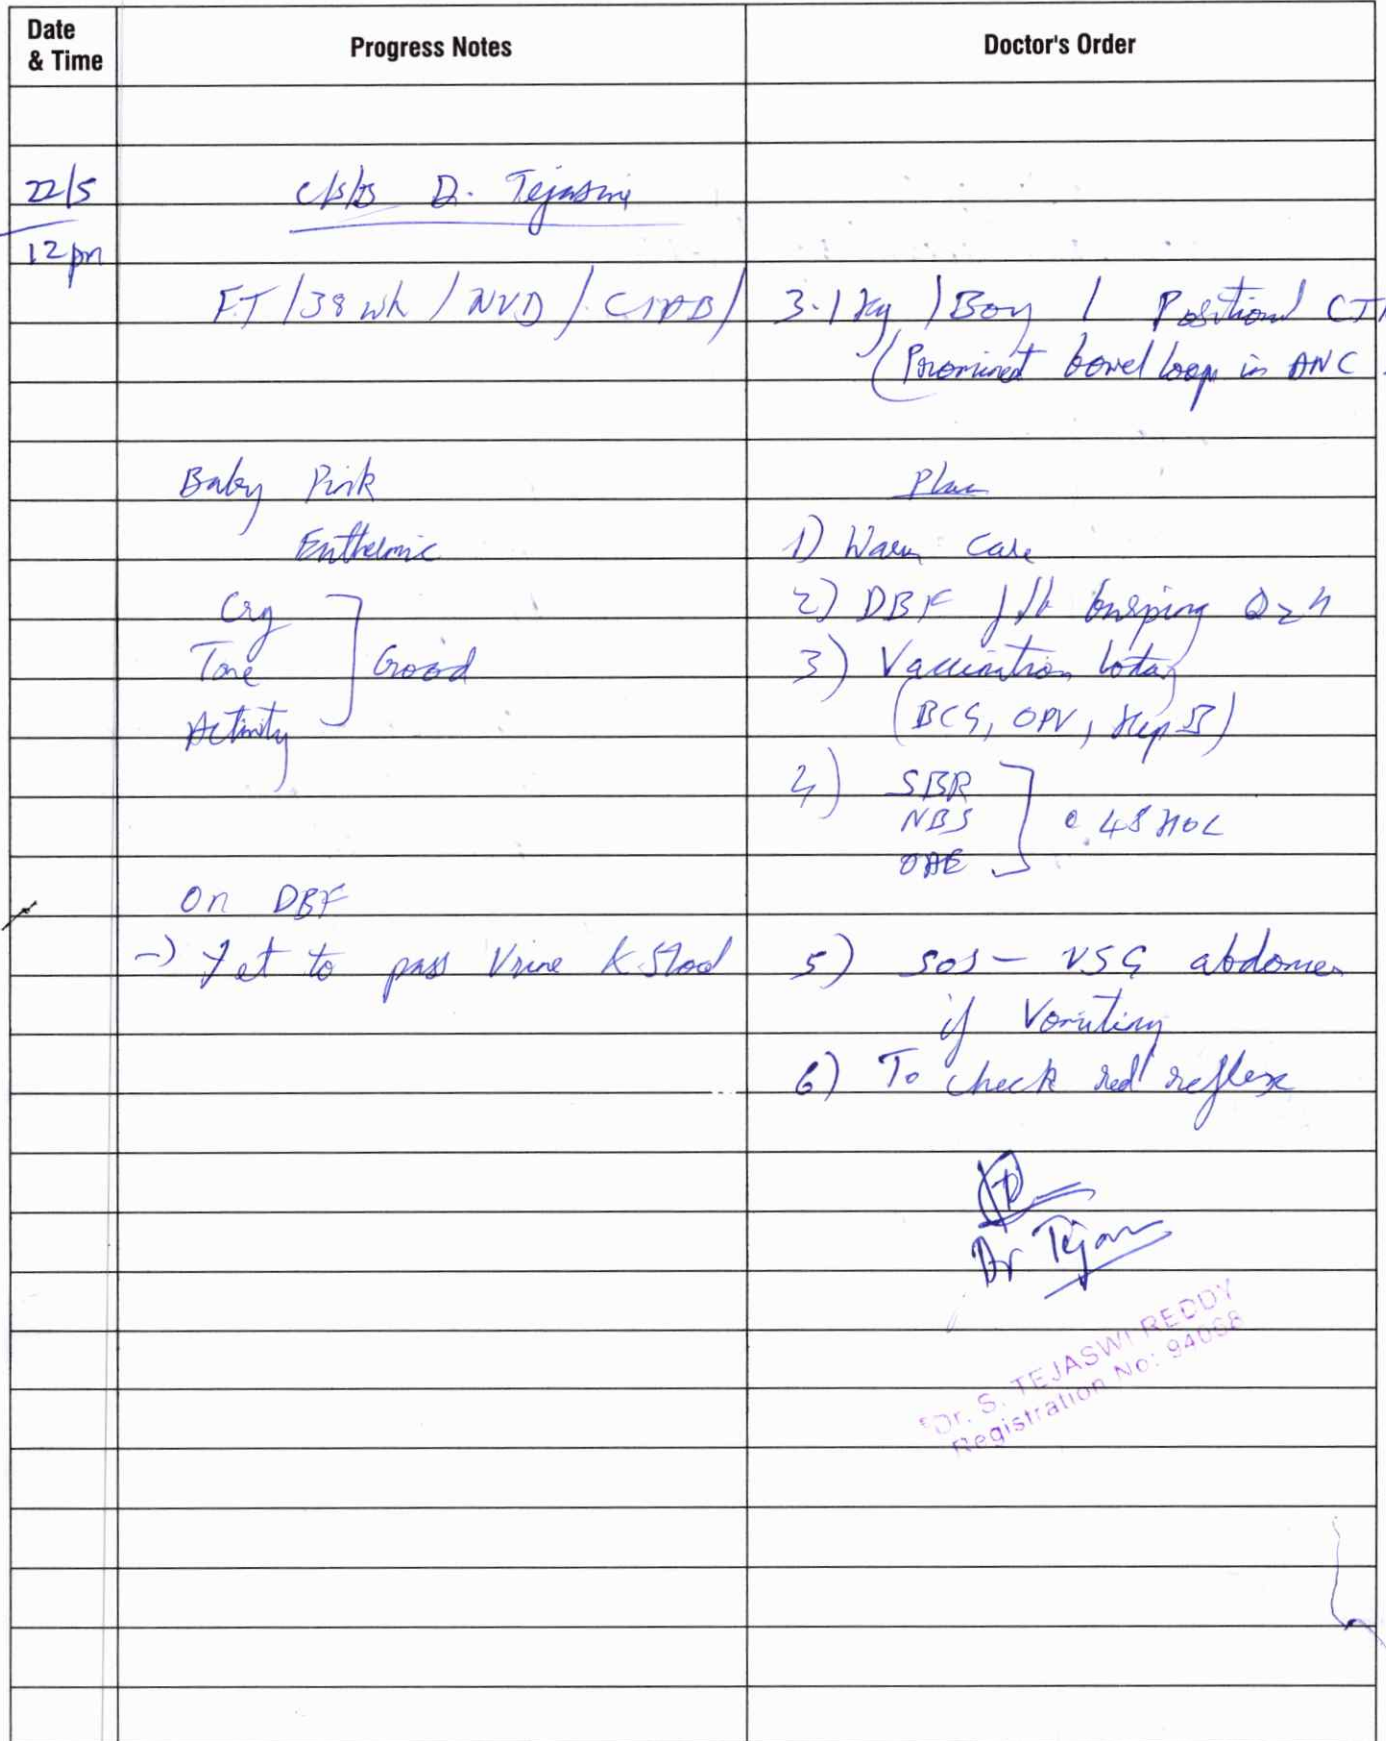 Date & Time
Progress Notes
Doctor's Order
22/5
12pm
c/s/b Dr. Tejaswi
FT / 38 wk / NVD / CIAB / 3.1 kg / Boy / Positional CT
(Prominent bowel loop in ANC
Baby Pink
Euthermic
Cry
Tone
Activity
Good
On DBF
-) Yet to pass Urine & Stool
Plan
1) Warm Care
2) DBF f/b burping Q2h
3) Vaccination today
(BCG, OPV, Hep B)
4) SBR
NBS
OAE
@ 48 HOL
5) SOS - USG abdomen
if Vomiting
6) To check red reflex
Dr Tejas
Dr. S. TEJASWI REDDY
Registration No: 94068